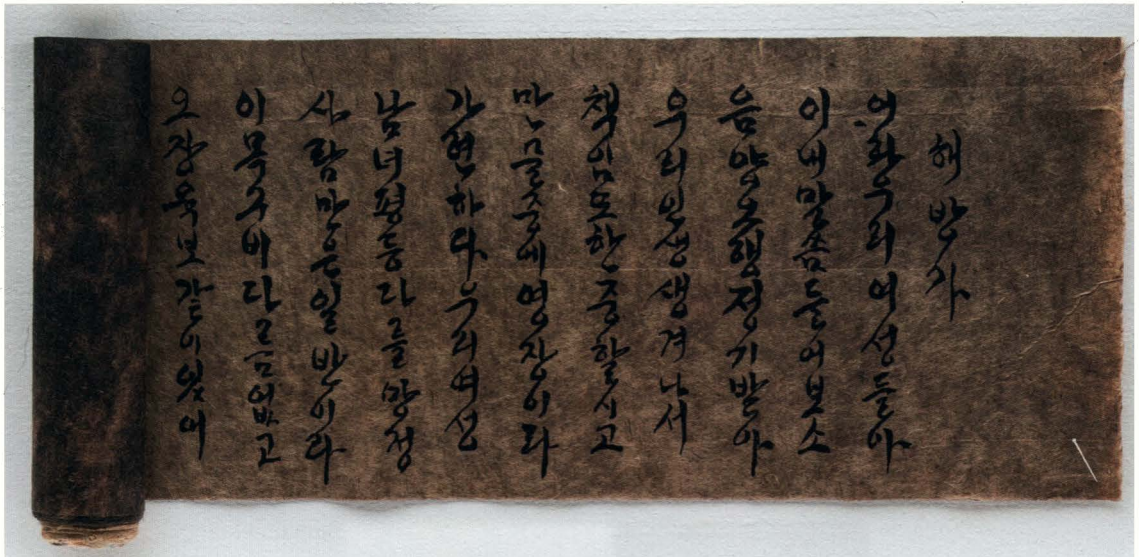 해방가
어화우리여성들아
이내말씀들어보소
음양오행정기받아
우리인생생겨나서
책임도한중할시고
만물중에영장이라
가련하다우리여성
남녀평등다를망정
사람만은일반이라
이목구비다름없고
오장육보갈이있어